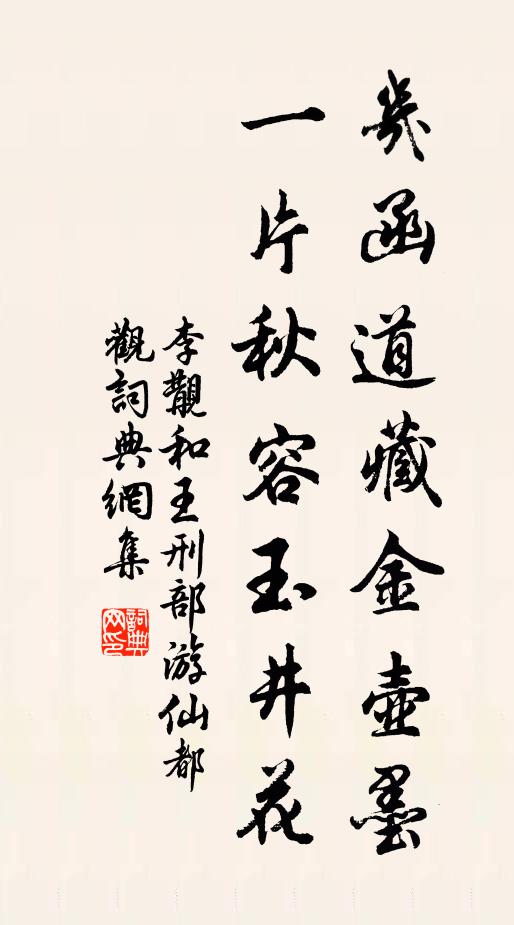 幾函道藏金壺墨
一片秋容玉井花
李覯和王刑部游仙都
觀詞典網集
詞典網印